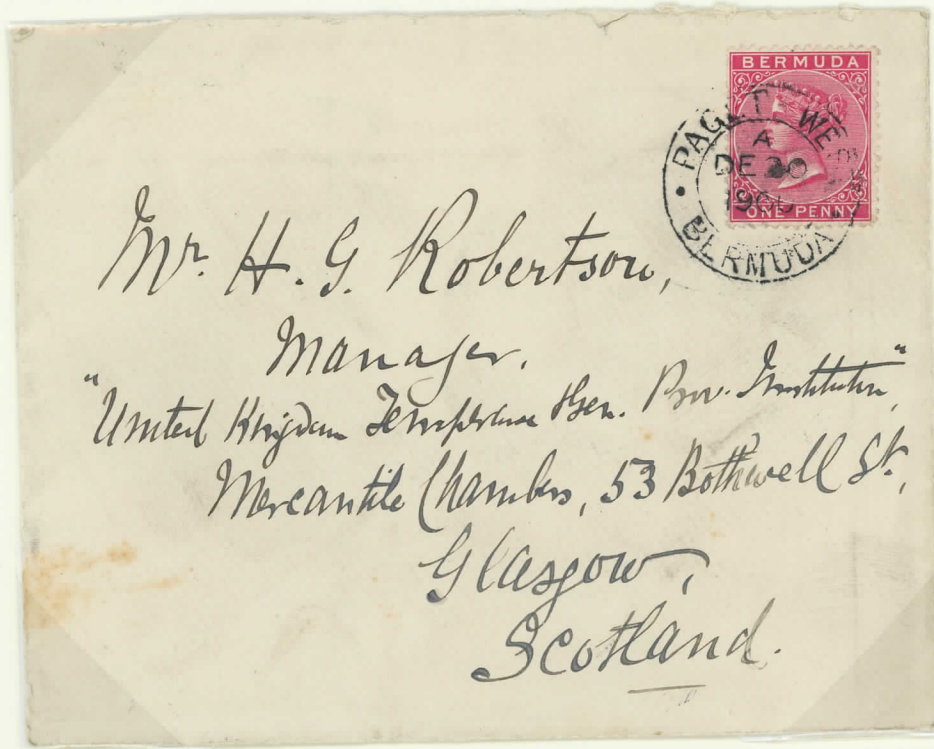 BERMUDA
PAGET WEST
A
DE 20
1900
ONE PENNY
BERMUDA
Mr. H. G. Robertson,
Manager.
"United Kingdom Temperance & Gen. Prov. Institution",
Mercantile Chambers, 53 Bothwell St.,
Glasgow,
Scotland.